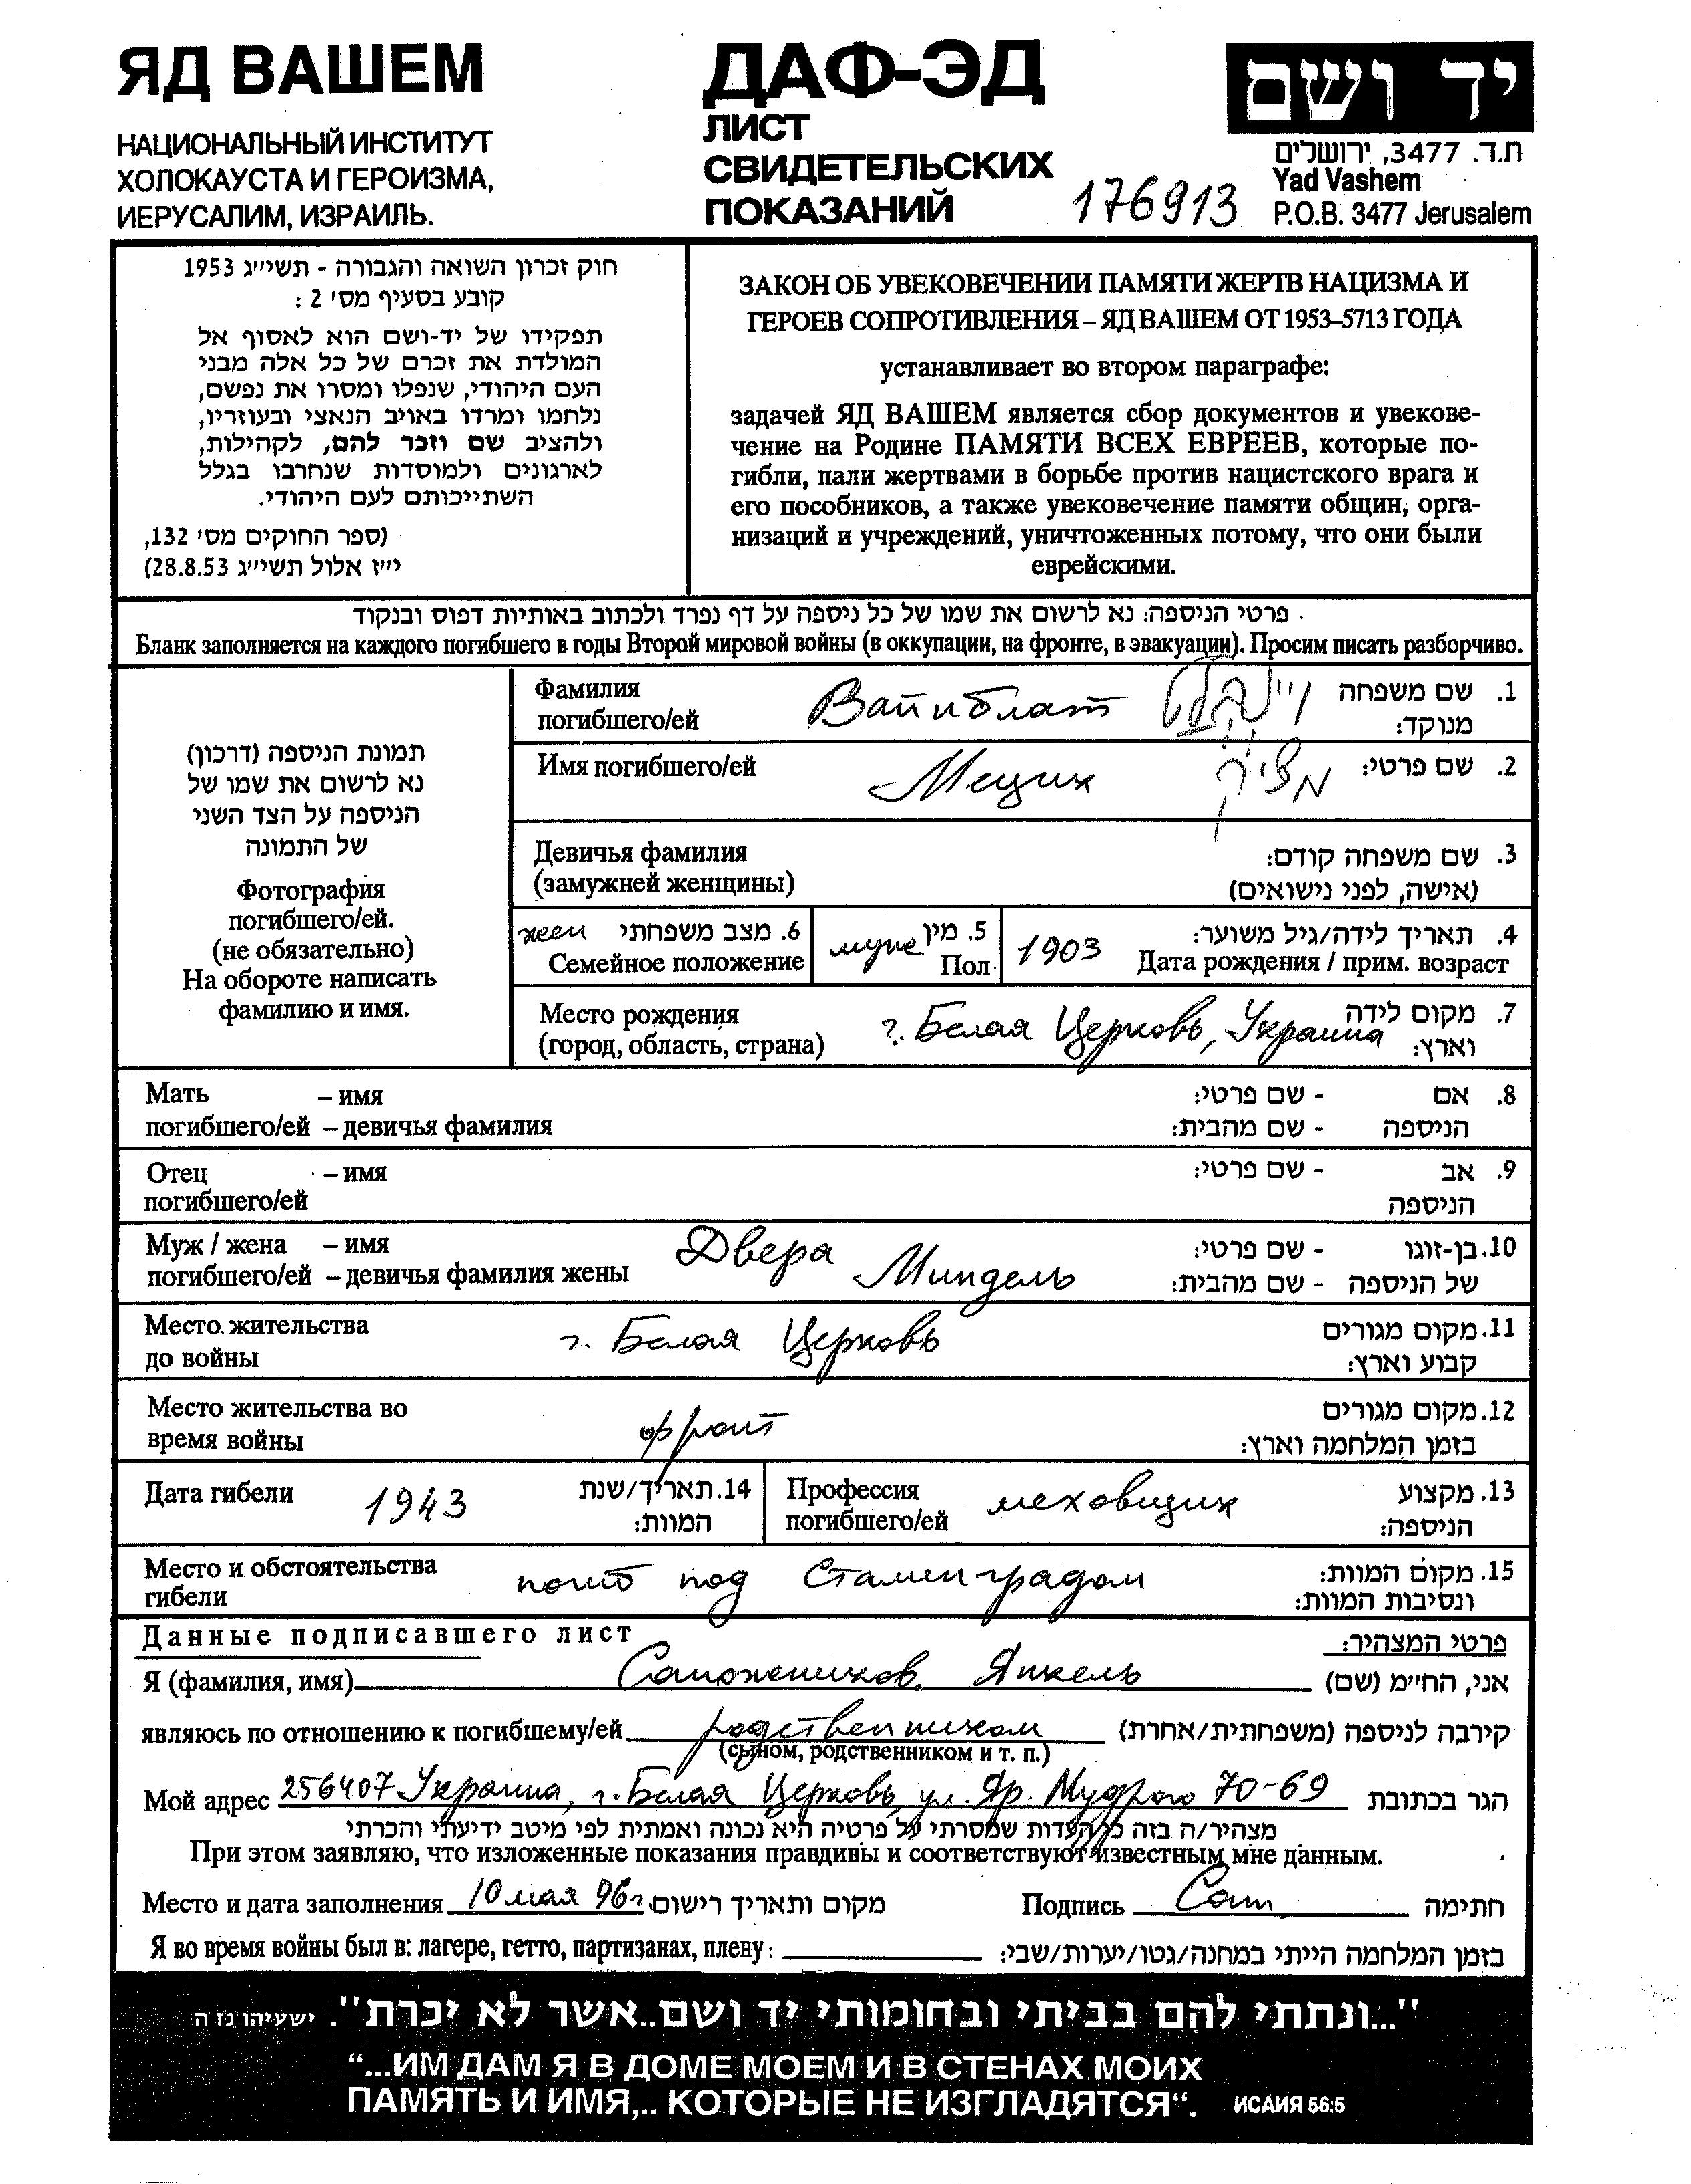 ЯД ВАШЕМ
НАЦИОНАЛЬНЫЙ ИНСТИТУТ
ХОЛОКАУСТА И ГЕРОИЗМА,
ИЕРУСАЛИМ, ИЗРАИЛЬ.
ДАФ-ЭД
ЛИСТ
СВИДЕТЕЛЬСКИХ
ПОКАЗАНИЙ
176913
יד ושם
ת.ד. 3477, ירושלים
Yad Vashem
P.O.B. 3477 Jerusalem
חוק זכרון השואה והגבורה - תשי״ג 1953
קובע בסעיף מס׳ 2 :
תפקידו של יד-ושם הוא לאסוף אל
המולדת את זכרם של כל אלה מבני
העם היהודי, שנפלו ומסרו את נפשם,
נלחמו ומרדו באויב הנאצי ובעוזריו,
ולהציב שם וזכר להם, לקהילות,
לארגונים ולמוסדות שנחרבו בגלל
השתייכותם לעם היהודי.
(ספר החוקים מס׳ 132,
י״ז אלול תשי״ג 28.8.53)
ЗАКОН ОБ УВЕКОВЕЧЕНИИ ПАМЯТИ ЖЕРТВ НАЦИЗМА И
ГЕРОЕВ СОПРОТИВЛЕНИЯ – ЯД ВАШЕМ ОТ 1953–5713 ГОДА
устанавливает во втором параграфе:
задачей ЯД ВАШЕМ является сбор документов и увекове-
чение на Родине ПАМЯТИ ВСЕХ ЕВРЕЕВ, которые по-
гибли, пали жертвами в борьбе против нацистского врага и
его пособников, а также увековечение памяти общин, орга-
низаций и учреждений, уничтоженных потому, что они были
еврейскими.
פרטי הניספה: נא לרשום את שמו של כל ניספה על דף נפרד ולכתוב באותיות דפוס ובנקוד
Бланк заполняется на каждого погибшего в годы Второй мировой войны (в оккупации, на фронте, в эвакуации). Просим писать разборчиво.
תמונת הניספה (דרכון)
נא לרשום את שמו של
הניספה על הצד השני
של התמונה
Фотография
погибшего/ей.
(не обязательно)
На обороте написать
фамилию и имя.
Фамилия Вайнблат ויינבלט 1. שם משפחה
погибшего/ей מנוקד:
Имя погибшего/ей Мецик מציק 2. שם פרטי:
Девичья фамилия 3. שם משפחה קודם:
(замужней женщины) (אישה, לפני נישואים)
жен 6. מצב משפחתי муж 5. מין 1903 4. תאריך לידה/גיל משוער:
Семейное положение Пол Дата рождения / прим. возраст
Место рождения г. Белая Церковь, Украина 7. מקום לידה
(город, область, страна) וארץ:
Мать – имя - שם פרטי: 8. אם
погибшего/ей – девичья фамилия - שם מהבית: הניספה
Отец – имя - שם פרטי: 9. אב
погибшего/ей הניספה
Муж / жена – имя Двера - שם פרטי: 10. בן-זוגו
погибшего/ей – девичья фамилия жены Миндель - שם מהבית: של הניספה
Место жительства г. Белая Церковь 11. מקום מגורים
до войны קבוע וארץ:
Место жительства во фронт 12. מקום מגורים
время войны בזמן המלחמה וארץ:
Дата гибели 1943 14. תאריך/שנת
המוות:
Профессия меховщик 13. מקצוע
погибшего/ей הניספה:
Место и обстоятельства погиб под Сталинградом 15. מקום המוות:
гибели ונסיבות המוות:
Данные подписавшего лист פרטי המצהיר:
Я (фамилия, имя) Сапожников Янкель אני, החי״מ (שם)
являюсь по отношению к погибшему/ей родственником קירבה לניספה (משפחתית/אחרת)
(сыном, родственником и т. п.)
Мой адрес 256407 Украина, г. Белая Церковь, ул. Яр. Мудрого 70-69 הגר בכתובת
מצהיר/ה בזה כי העדות שמסרתי על פרטיה היא נכונה ואמתית לפי מיטב ידיעתי והכרתי
При этом заявляю, что изложенные показания правдивы и соответствуют известным мне данным.
Место и дата заполнения 10 мая 96г מקום ותאריך רישום Подпись Сап חתימה
Я во время войны был в: лагере, гетто, партизанах, плену: בזמן המלחמה הייתי במחנה/גטו/יערות/שבי:
"...ונתתי להם בביתי ובחומותי יד ושם..אשר לא יכרת". ישעיהו נז ה
“...ИМ ДАМ Я В ДОМЕ МОЕМ И В СТЕНАХ МОИХ
ПАМЯТЬ И ИМЯ,.. КОТОРЫЕ НЕ ИЗГЛАДЯТСЯ“. ИСАИЯ 56:5